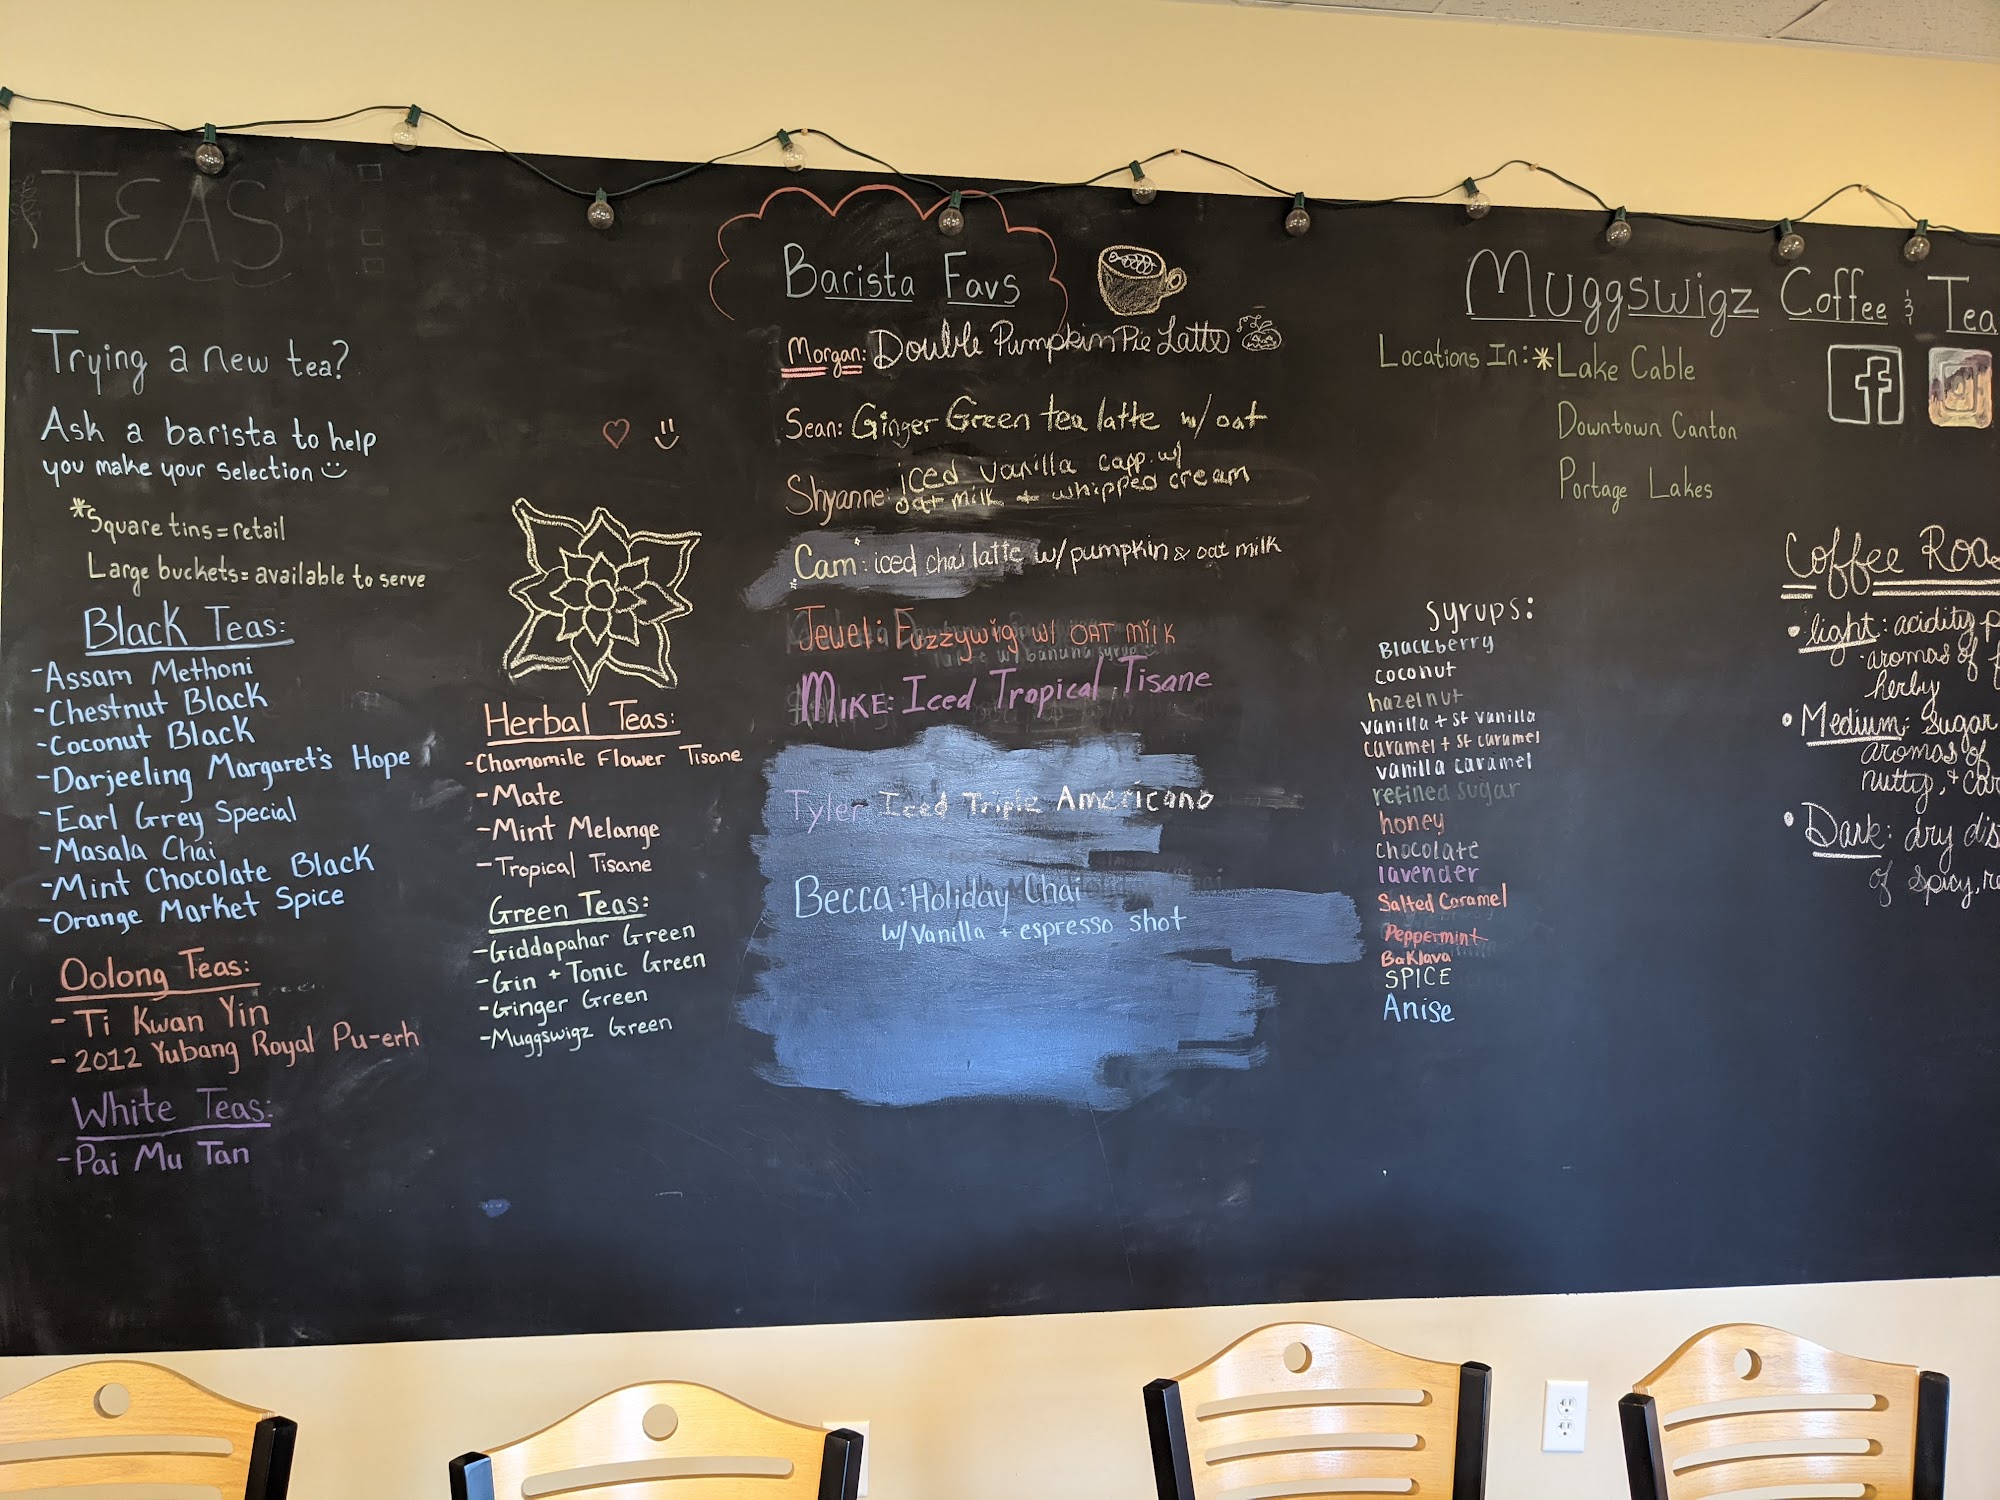 TEAS
Trying a new tea?
Ask a barista to help
you make your selection
*Square tins = retail
Large buckets = available to serve
Black Teas:
-Assam Methoni
-Chestnut Black
-Coconut Black
-Darjeeling Margaret's Hope
-Earl Grey Special
-Masala Chai
-Mint Chocolate Black
-Orange Market Spice
Oolong Teas:
-Ti Kwan Yin
-2012 Yubang Royal Pu-erh
White Teas:
-Pai Mu Tan
Herbal Teas:
-Chamomile Flower Tisane
-Mate
-Mint Melange
-Tropical Tisane
Green Teas:
-Giddapahar Green
-Gin + Tonic Green
-Ginger Green
-Muggswigz Green
Barista Favs
Morgan: Double Pumpkin Pie Latte
Sean: Ginger Green tea latte w/ oat
Shyanne: iced vanilla capp. w/
oat milk + whipped cream
Cam: iced chai latte w/ pumpkin & oat milk
Jewel: Fuzzywig w/ OAT MILK
w/ banana syrup
MIKE: Iced Tropical Tisane
Tyler Iced Triple Americano
Becca: Holiday Chai
w/ Vanilla + espresso shot
Muggswigz Coffee & Tea
Locations In: *Lake Cable
Downtown Canton
Portage Lakes
f
Syrups:
Blackberry
coconut
hazelnut
vanilla + sf vanilla
caramel + sf caramel
vanilla caramel
refined sugar
honey
chocolate
lavender
Salted Caramel
Peppermint
Baklava
SPICE
Anise
Coffee Roa
• light: acidity p
aromas of f
herby
• Medium: Sugar
aromas of
nutty, + car
• Dark: dry dis
of spicy, re